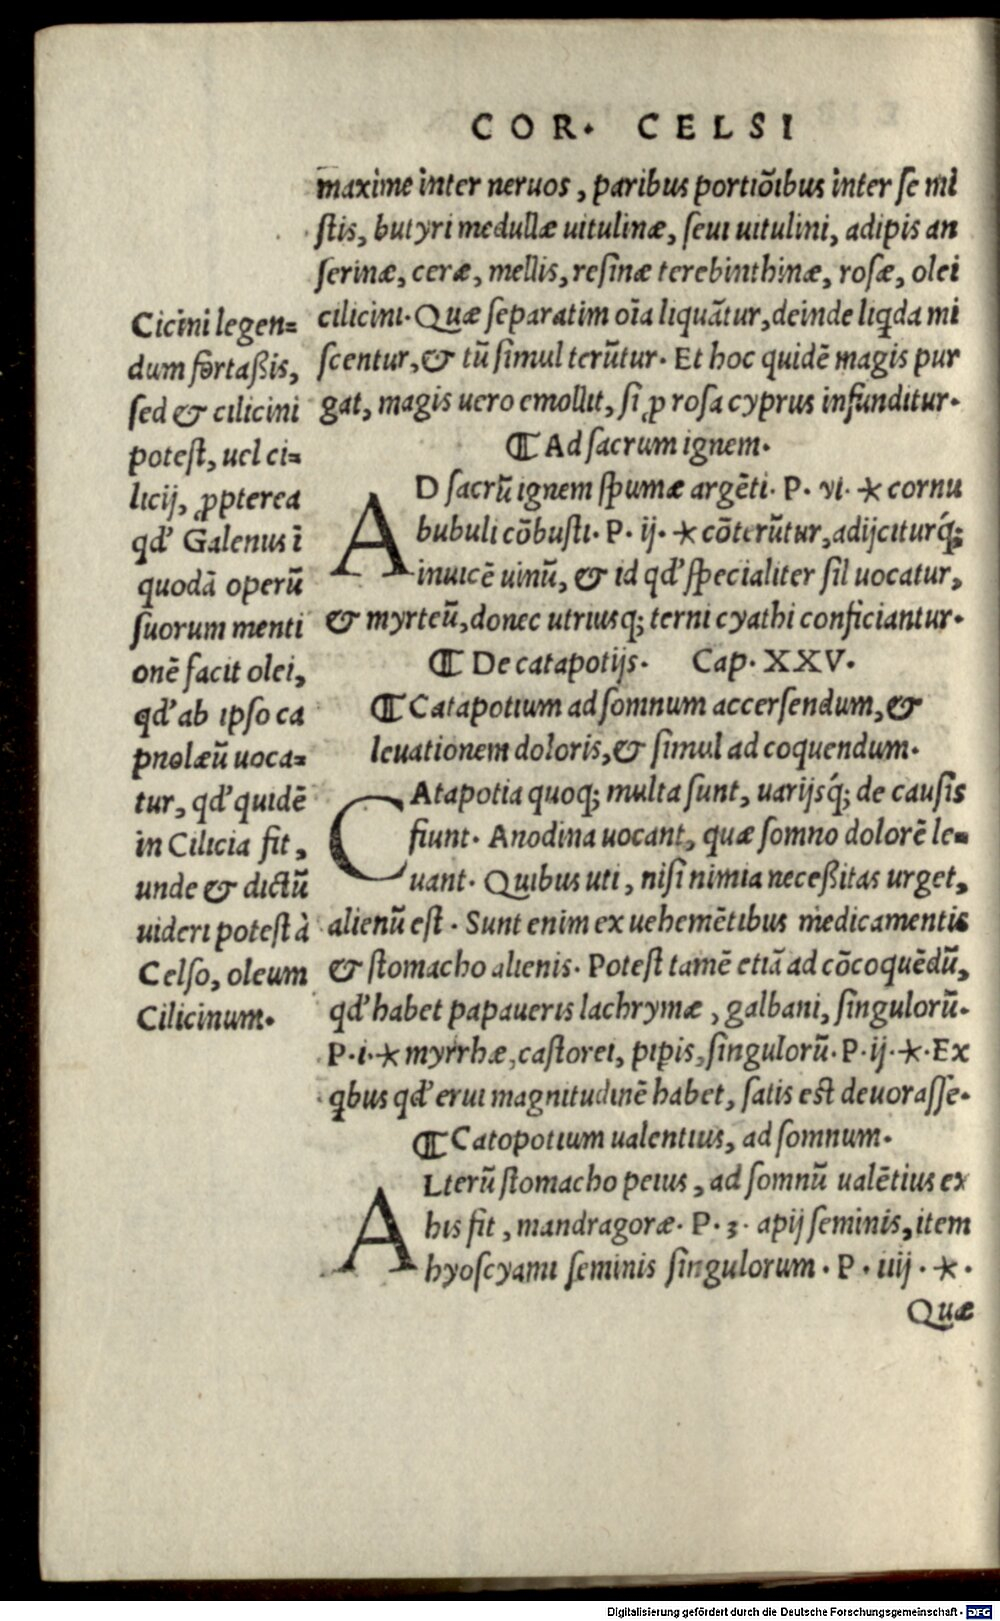 COR. CELSI
maxime inter neruos, paribus portiõibus inter se mi
stis, butyri medullæ uitulinæ, seui uitulini, adipis an
serinæ, ceræ, mellis, resinæ terebinthinæ, rosæ, olei
cilicini. Quæ separatim oĩa liquãtur, deinde liqda mi
scentur, & tũ simul terũtur. Et hoc quidẽ magis pur
gat, magis uero emollit, si ꝓ rosa cyprus infunditur.
¶ Ad sacrum ignem.
AD sacrũ ignem spumæ argẽti. P. vi. * cornu
bubuli cõbusti. P. ij. * cõterũtur, adijciturq́;
inuicẽ uinũ, & id qď specialiter sil uocatur,
& myrteũ, donec utriusq; terni cyathi conficiantur.
¶ De catapotijs. Cap. XXV.
¶ Catapotium ad somnum accersendum, &
leuationem doloris, & simul ad coquendum.
CAtapotia quoq; multa sunt, uarijsq́; de causis
fiunt. Anodina uocant, quæ somno dolorẽ le=
uant. Quibus uti, nisi nimia neceßitas urget,
alienũ est. Sunt enim ex uehemẽtibus medicamentis
& stomacho alienis. Potest tamẽ etiã ad cõcoquẽdũ,
qď habet papaueris lachrymæ, galbani, singulorũ.
P. i. * myrrhæ, castorei, pipis, singulorũ. P. ij. *. Ex
qbus qď erui magnitudinẽ habet, satis est deuorasse.
¶ Catopotium ualentius, ad somnum.
ALterũ stomacho peius, ad somnũ ualẽtius ex
his fit, mandragoræ. P. 3. apij seminis, item
hyoscyami seminis singulorum. P. iiij. *.
Quæ
Cicini legen=
dum fortaßis,
sed & cilicini
potest, uel ci=
licij, ꝓpterea
qď Galenus ĩ
quodã operũ
suorum menti
onẽ facit olei,
qď ab ipso ca
pnelæũ uoca=
tur, qď quidẽ
in Cilicia fit,
unde & dictũ
uideri potest à
Celso, oleum
Cilicinum.
Digitalisierung gefördert durch die Deutsche Forschungsgemeinschaft - DFG